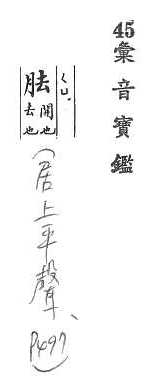 45彙音寶鑑
ㄑㄩ.
胠開也去也
(居上平聲、P497)